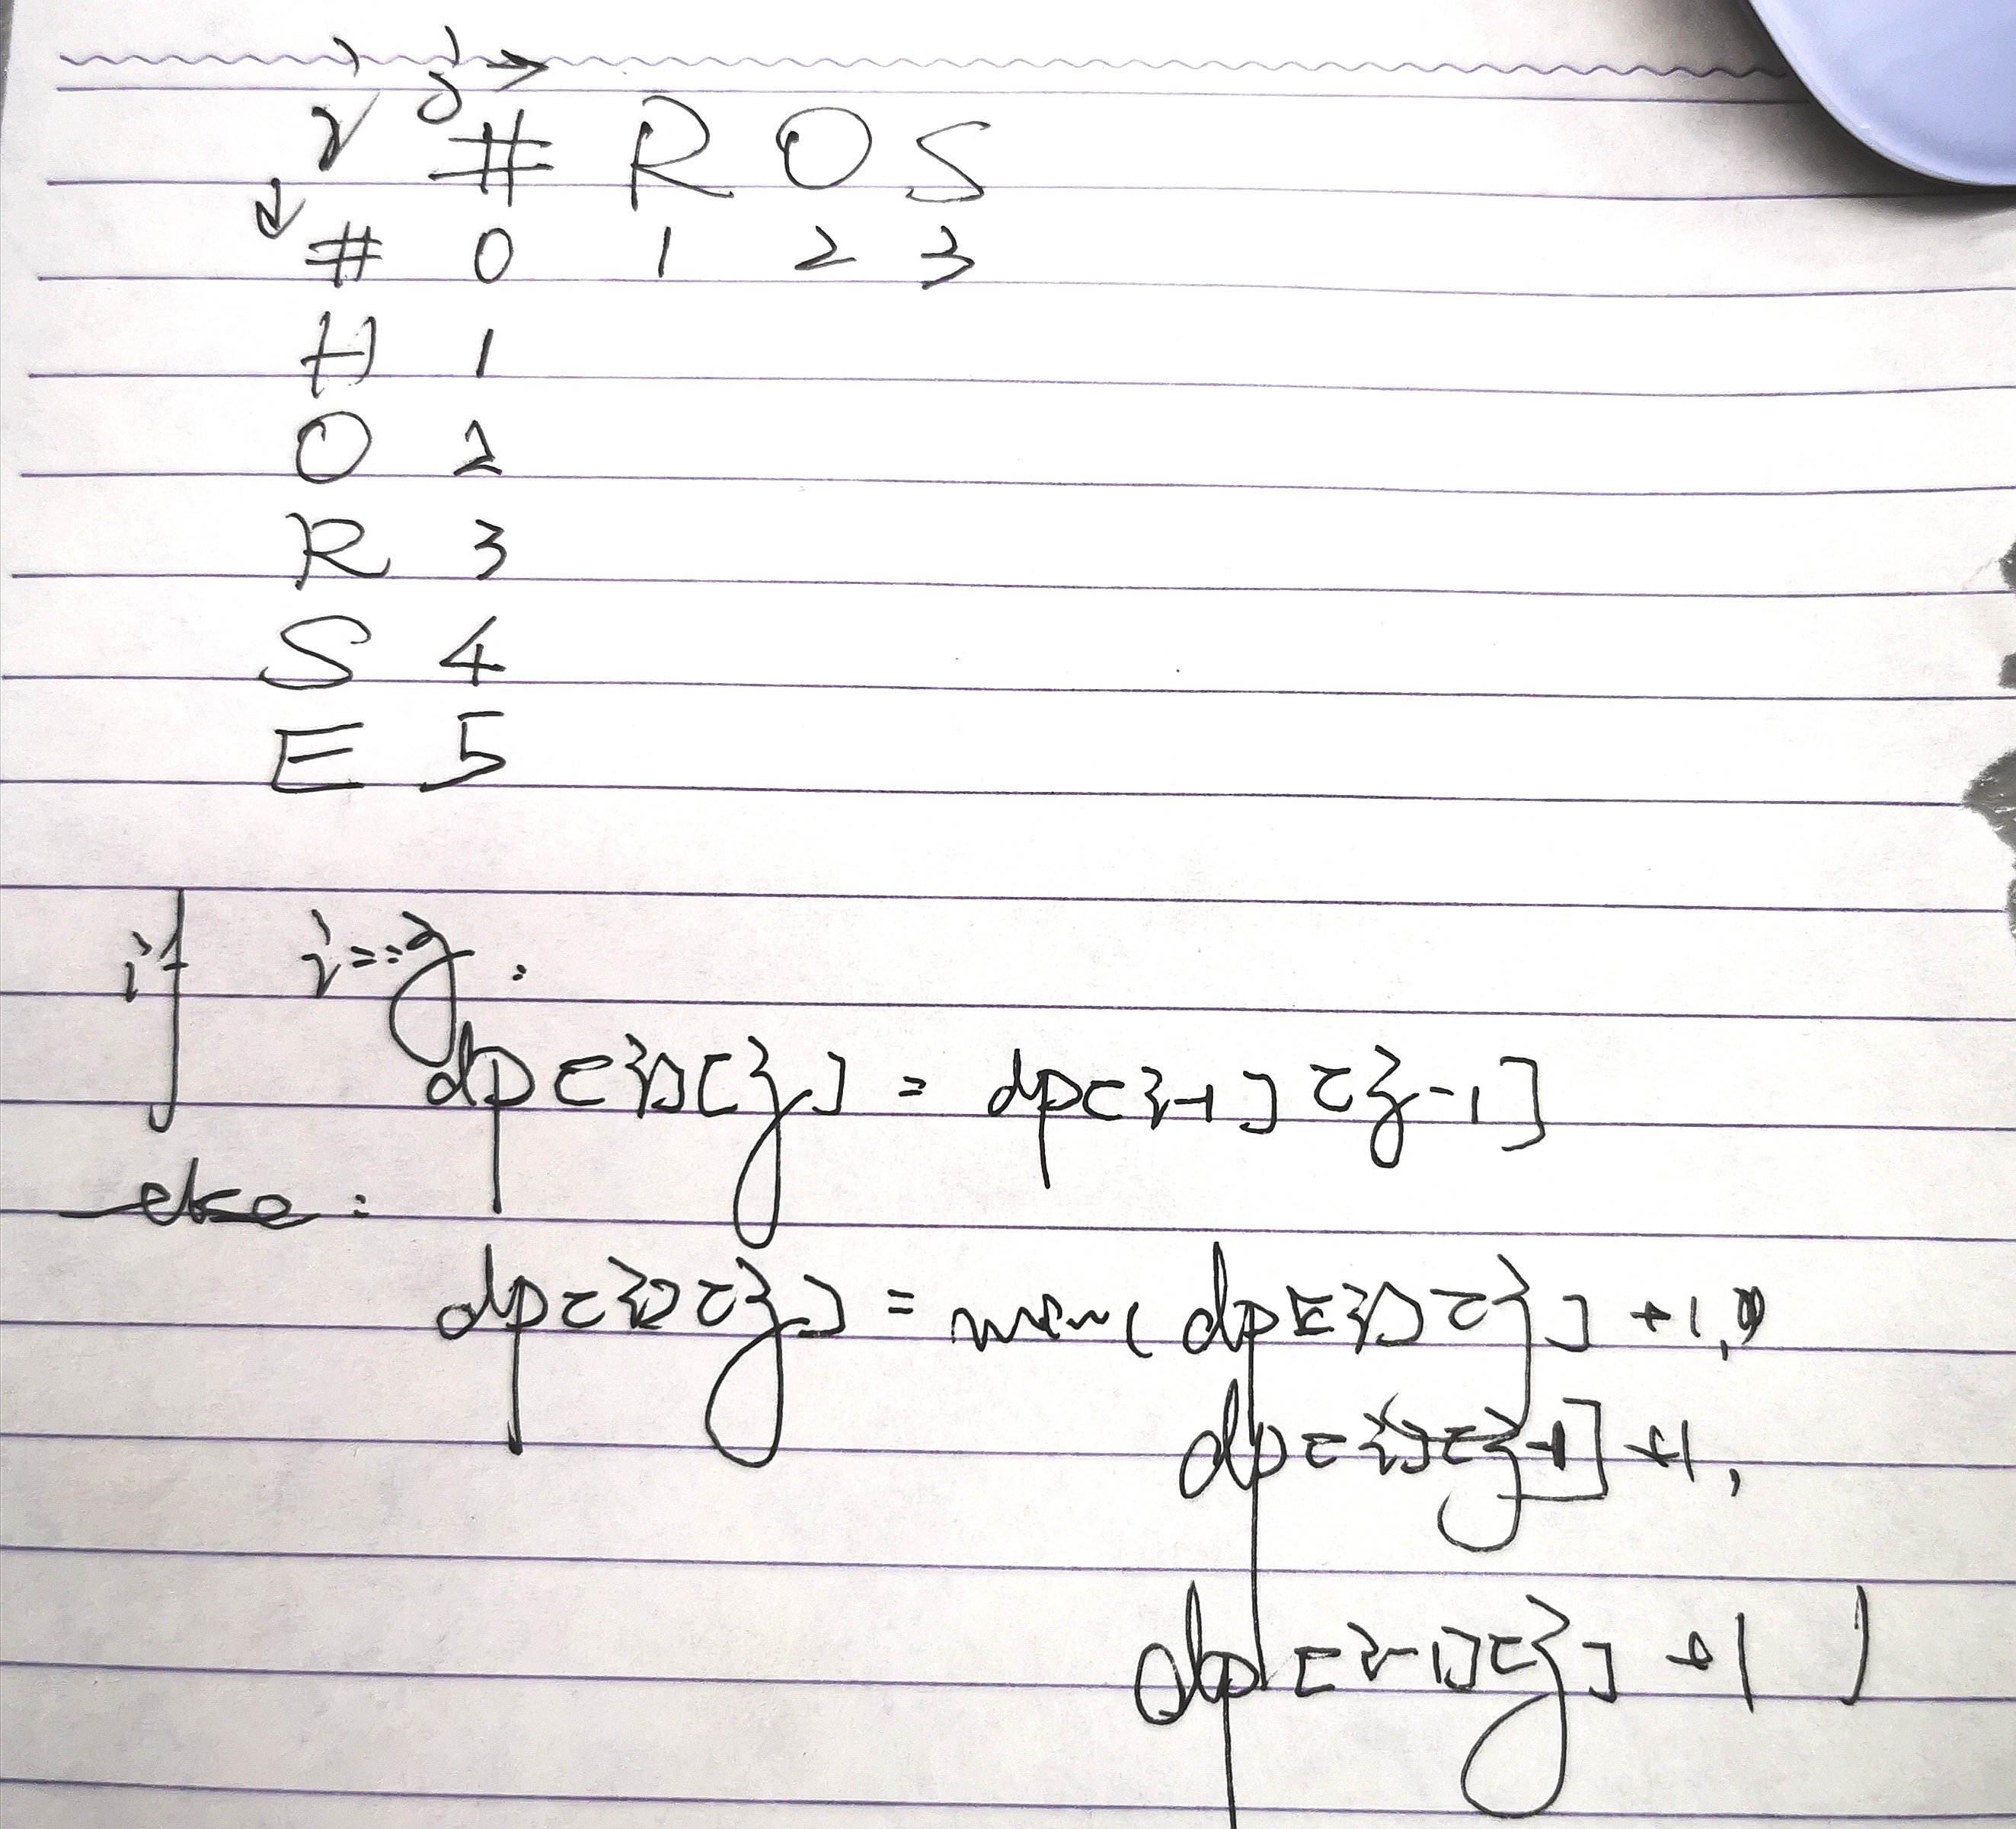 i j →
↓ # R O S
# 0 1 2 3
H 1
O 2
R 3
S 4
E 5
if i==j :
dp[i][j] = dp[i-1][j-1]
else :
dp[i][j] = min( dp[i][j] +1,
dp[i][j-1] +1,
dp[i-1][j] +1 )